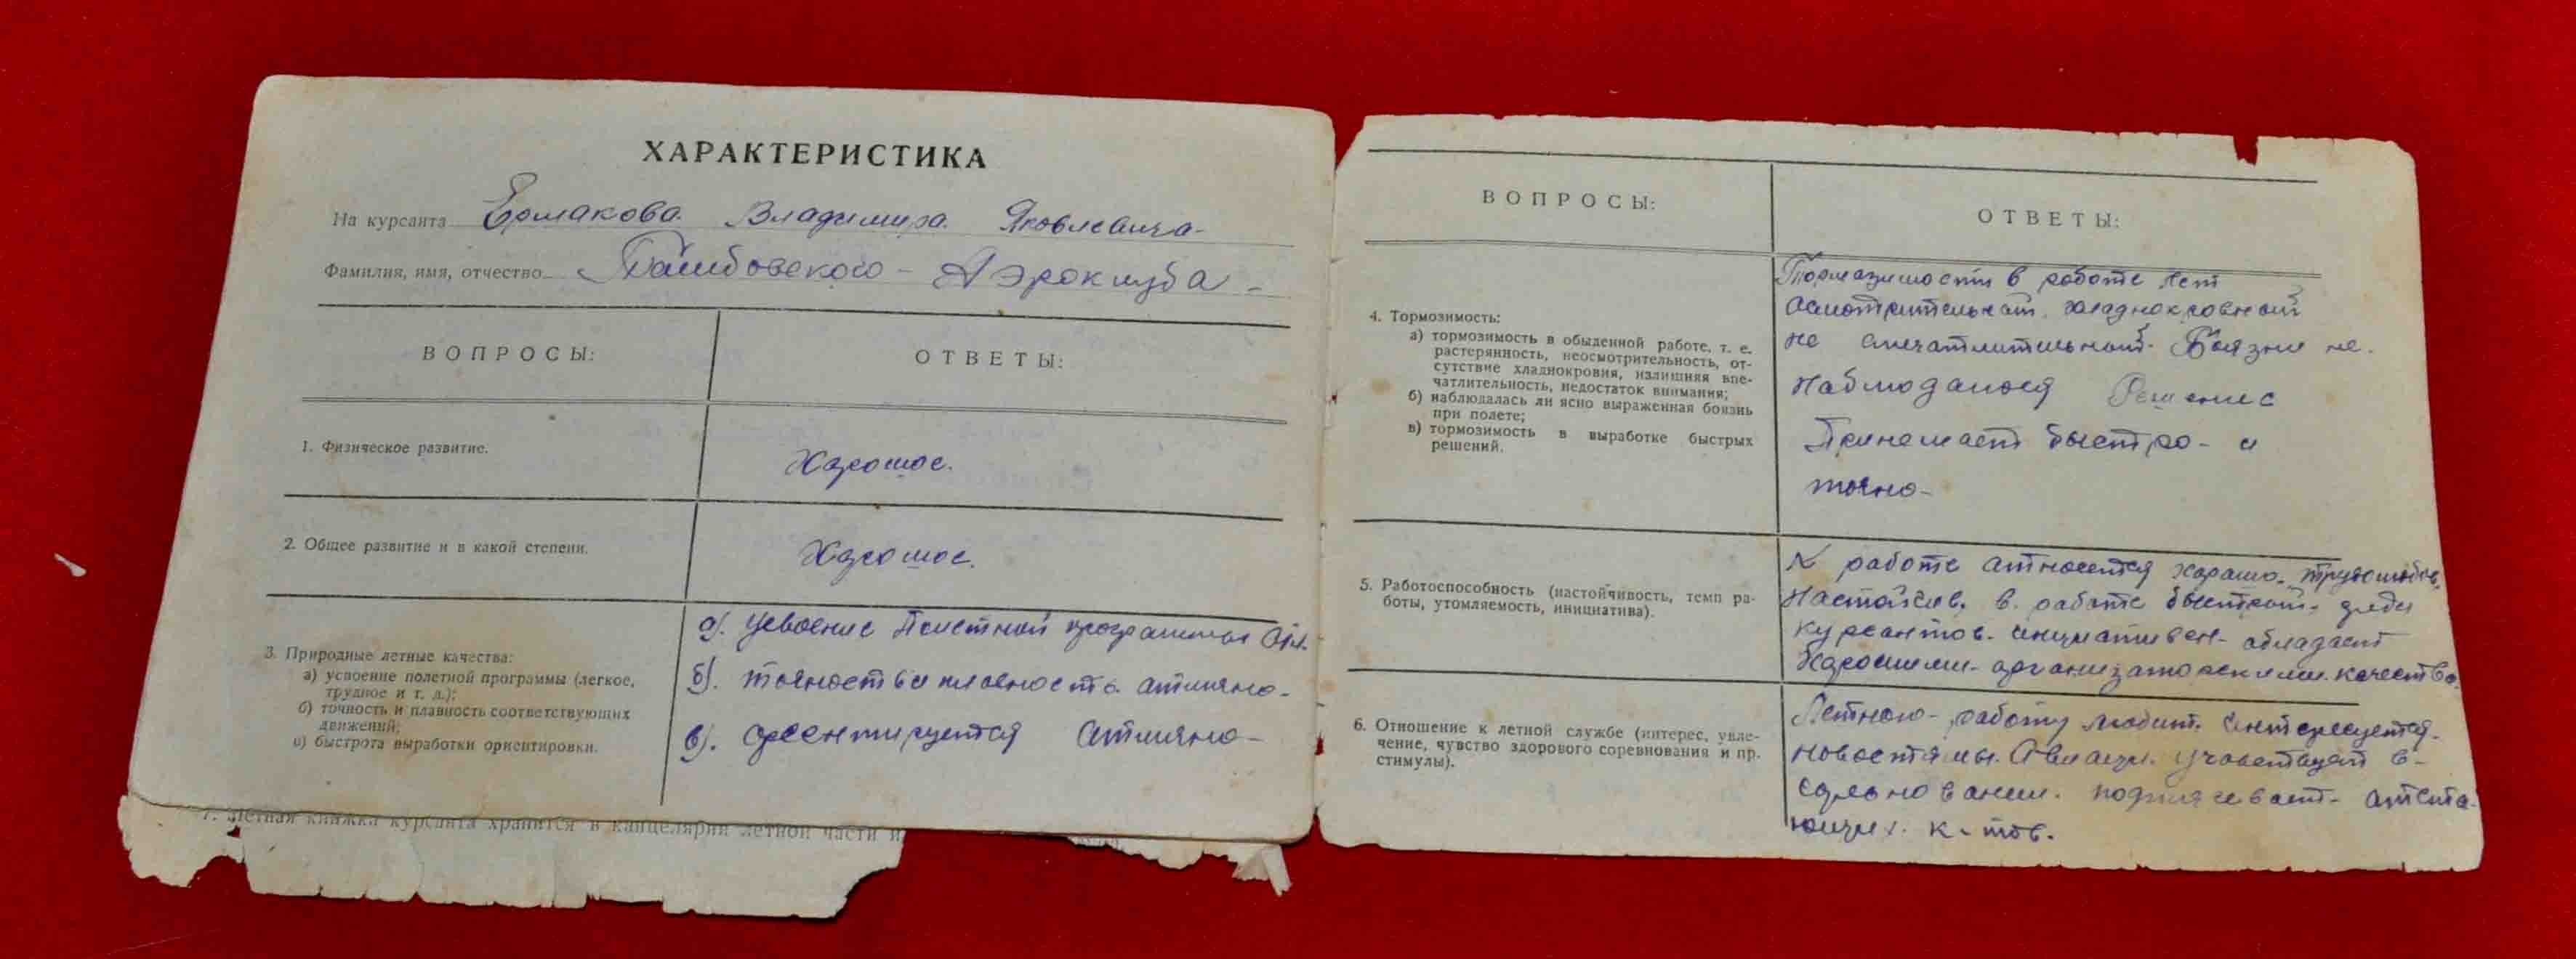 ХАРАКТЕРИСТИКА
На курсанта Ермакова Владимира Яковлевича
Фамилия, имя, отчество Тамбовского - Аэроклуба -
ВОПРОСЫ:
ОТВЕТЫ:
1. Физическое развитие.
Хорошое.
2. Общее развитие и в какой степени.
Хорошое.
3. Природные летные качества:
а) усвоение полетной программы (легкое,
трудное и т. д.);
б) точность и плавность соответствующих
движений;
в) быстрота выработки ориентировки.
а). усвоение Полетной программы
б). точность и плавность атлично-
в). ореентируется Атлично-
7. Летная книжка курсанта хранится в канцелярии летной части и
ВОПРОСЫ:
ОТВЕТЫ:
4. Тормозимость:
а) тормозимость в обыденной работе, т. е.
растерянность, неосмотрительность, от-
сутствие хладнокровия, излишняя впе-
чатлительность, недостаток внимания;
б) наблюдалась ли ясно выраженная боязнь
при полете;
в) тормозимость в выработке быстрых
решений.
Тормазимости в работе Нет
осмотрительный. хладнокровный
не Боязни не.
Наблюдалося Решение
Принемает быстро- и
точно-
5. Работоспособность (настойчивость, темп ра-
боты, утомляемость, инициатива).
К работе атносится харашо. трудолюбив.
Настойчив. в. работе быстрый. среди
курсантов. инциативен- абладает
Хорошими- организаторскими. качества
6. Отношение к летной службе (интерес, увле-
чение, чувство здорового соревнования и пр.
стимулы).
Летною- работу любит. Интересуется.
Новостямы. Авиации. Учавствует в-
сорвновании. подтягевает- атста-
ющих. к-тов.